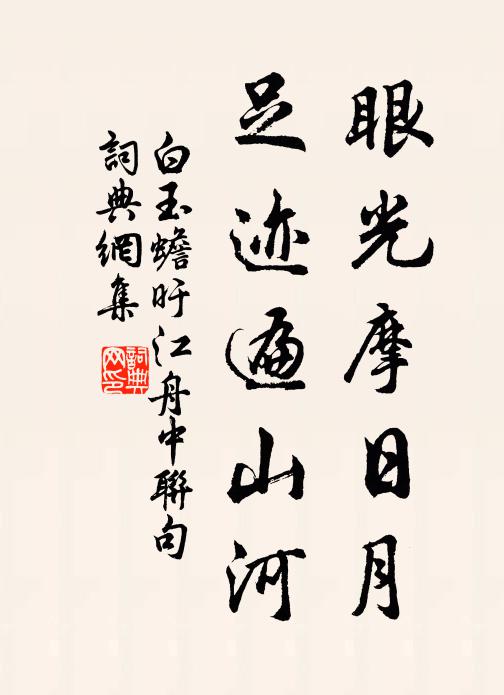 眼光摩日月
足迹遍山河
白玉蟾旴江舟中聯句
詞典網集
詞典網印